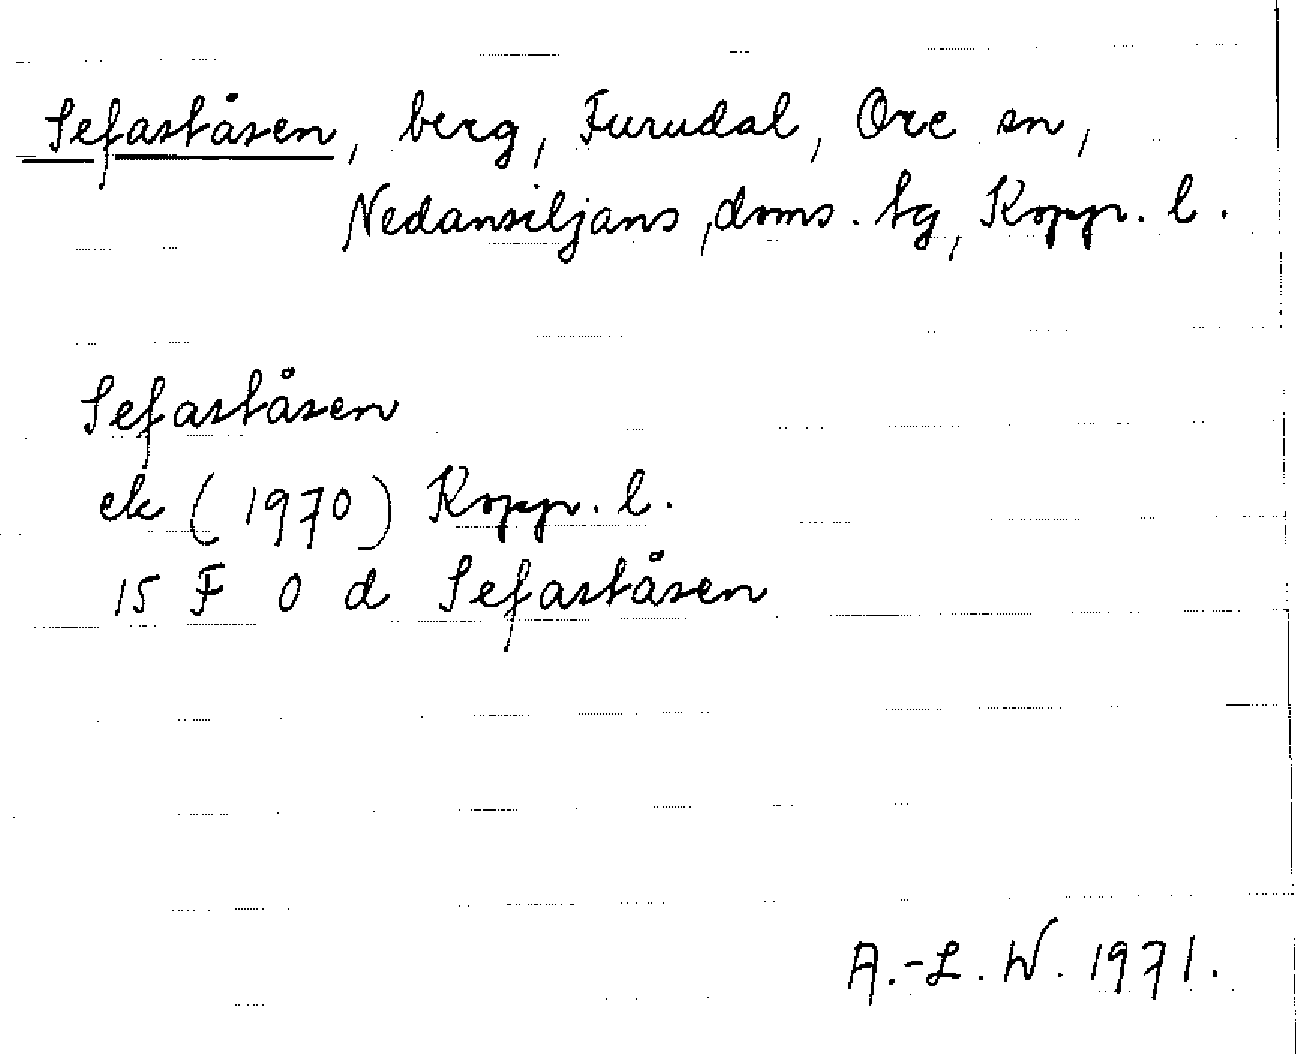 Sefaståsen, berg, Furudal, Ore sn,
Nedansiljans doms. tg, Kopp. l.
Sefaståsen
ek (1970) Kopp. l.
15 F 0 d Sefaståsen
A.-L. W. 1971.